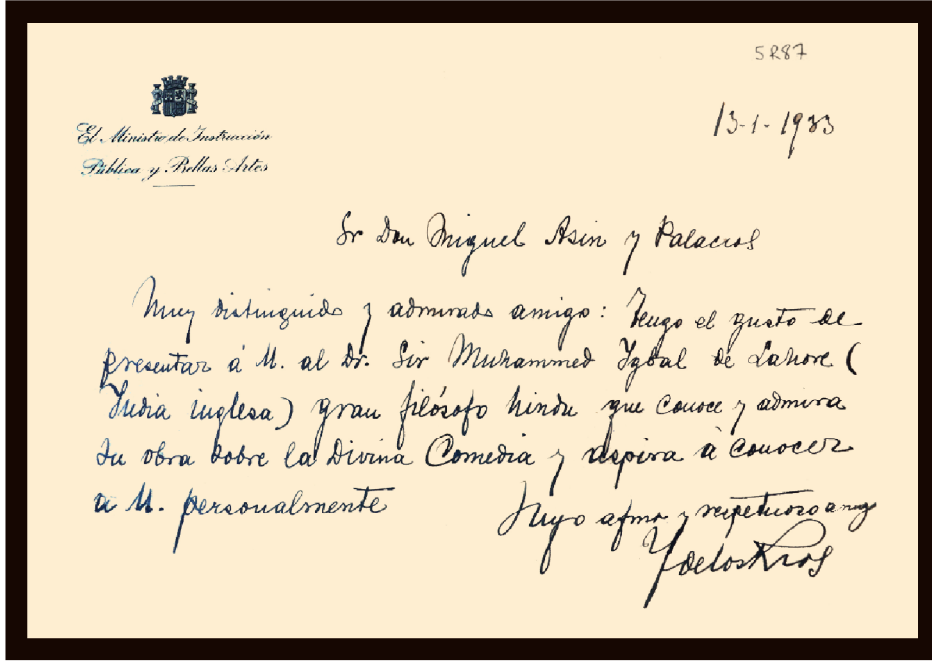 5R87
13-1-1933
El Ministro de Instrucción
Pública y Bellas Artes
Sr Don Miguel Asin y Palacios
Muy distinguido y admirado amigo: Tengo el gusto de
presentar á U. al Dr. Sir Muhammed Iqbal de Lahore (
India inglesa) gran filósofo hindu que conoce y admira
su obra sobre la Divina Comedia y aspira á conocer
a U. personalmente
Suyo afmo y respetuoso amigo
F de los Rios